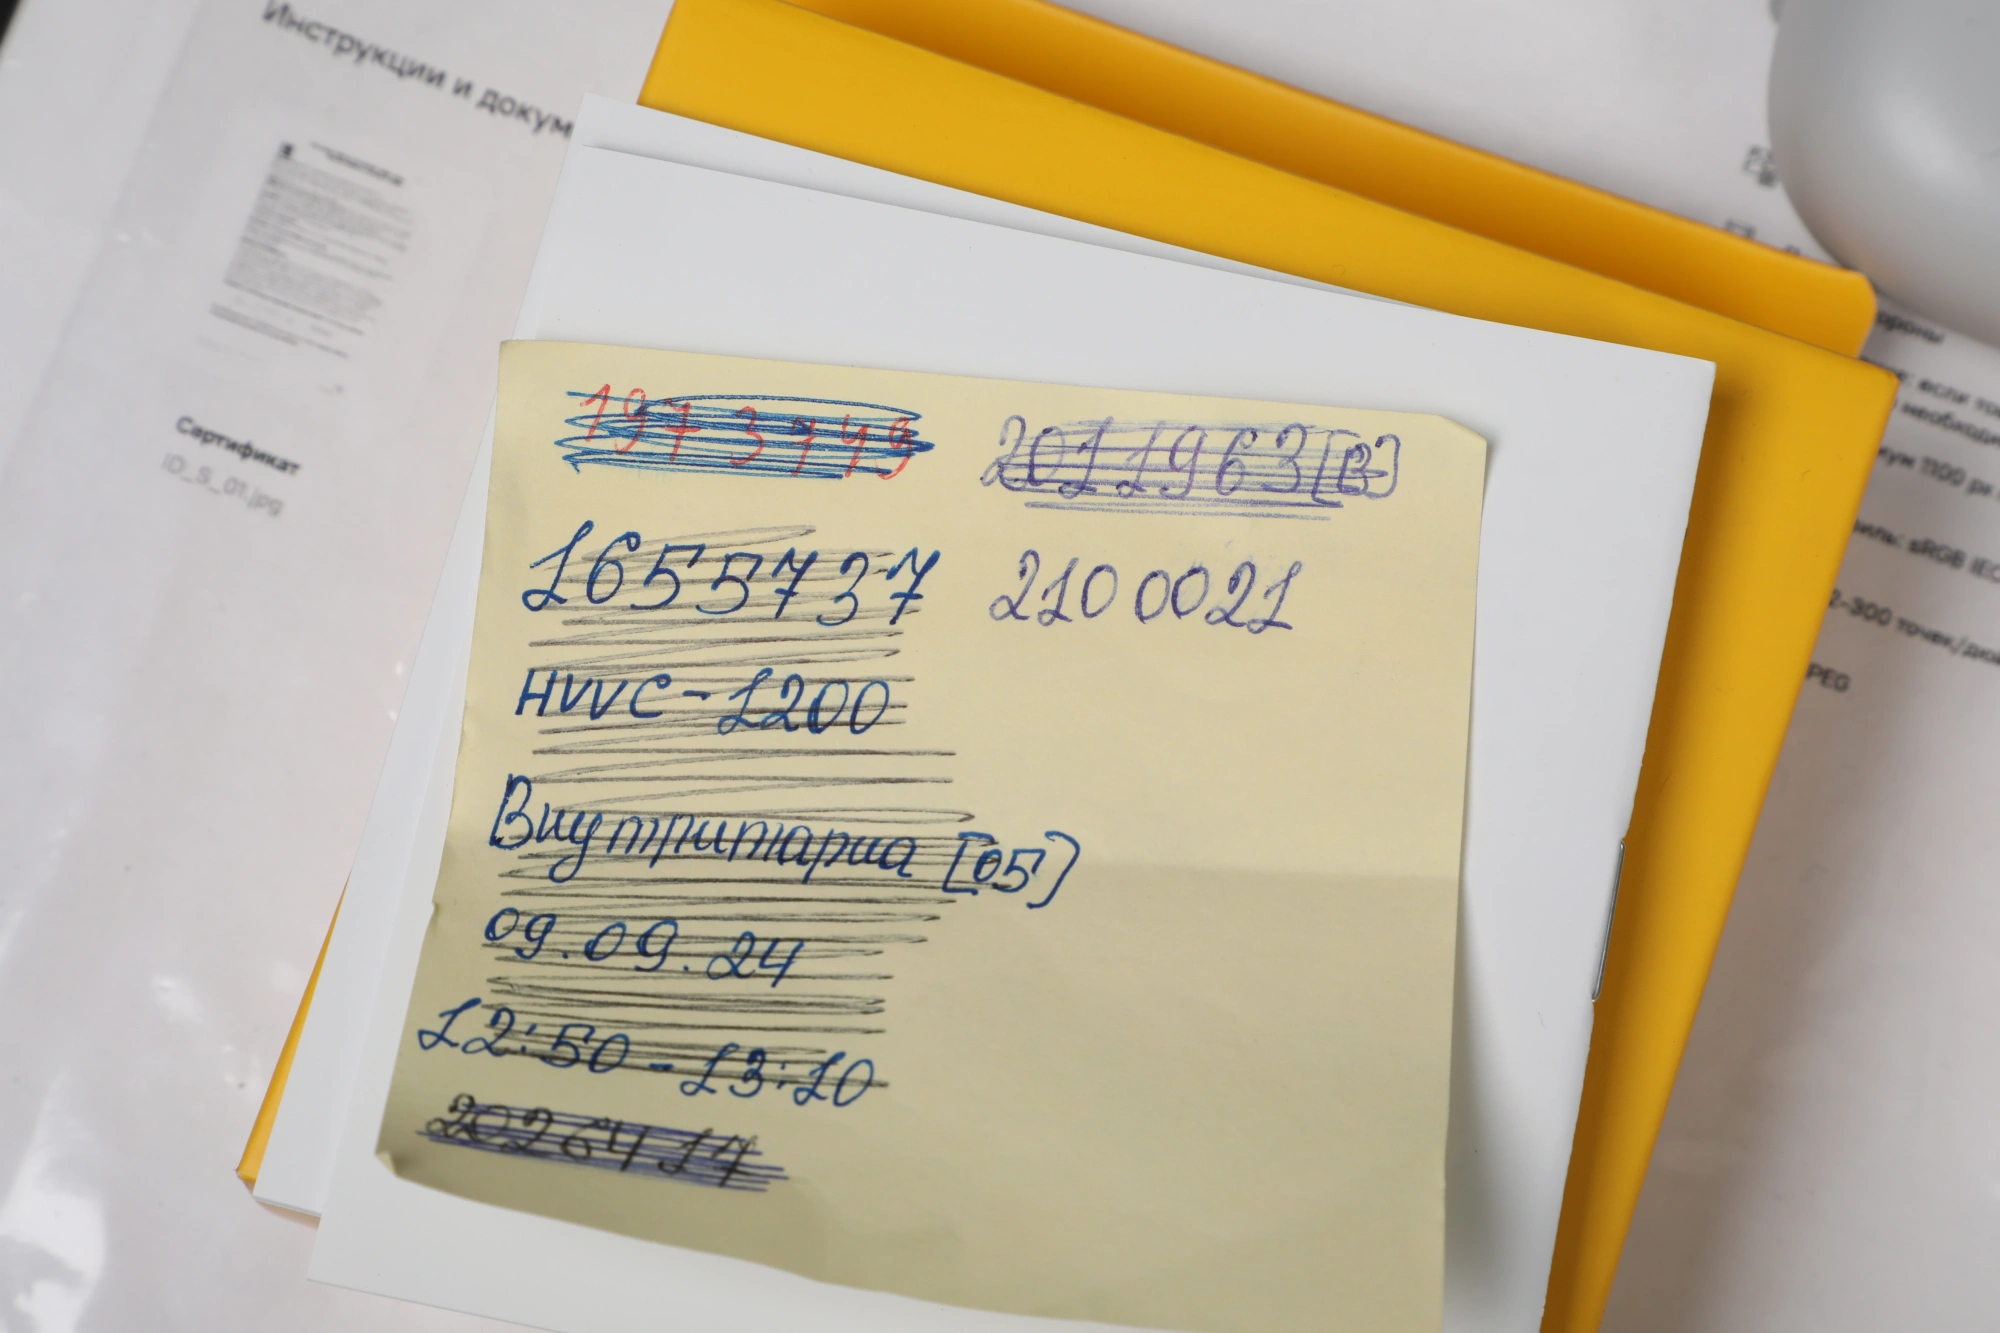 Инструкции и докум
Сертификат
ID_S_01.jpg
1973749
2011963[В]
1655737
2100021
HVVC-1200
Внутритариа [05]
09.09.24
12:50-13:10
2026414
ороны
если то
необходи
1100 px
sRGB IEC
2-300 точек/дюй
PEG